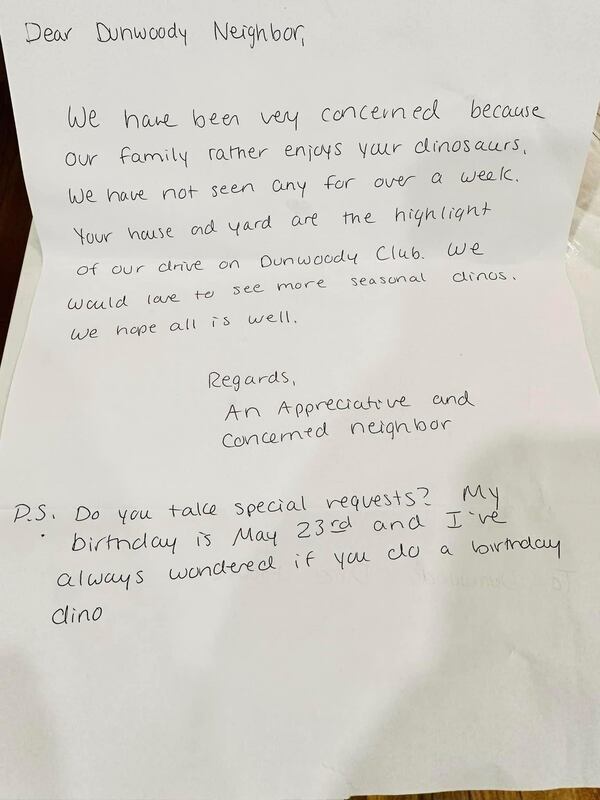 Dear Dunwoody Neighbor,
We have been very concerned because
our family rather enjoys your dinosaurs.
We have not seen any for over a week.
Your house ad yard are the highlight
of our drive on Dunwoody Club. We
would love to see more seasonal dinos.
We hope all is well.
Regards,
An Appreciative and
Concerned neighbor
P.S. Do you take special requests? My
birthday is May 23rd and I've
always wondered if you do a birthday
dino